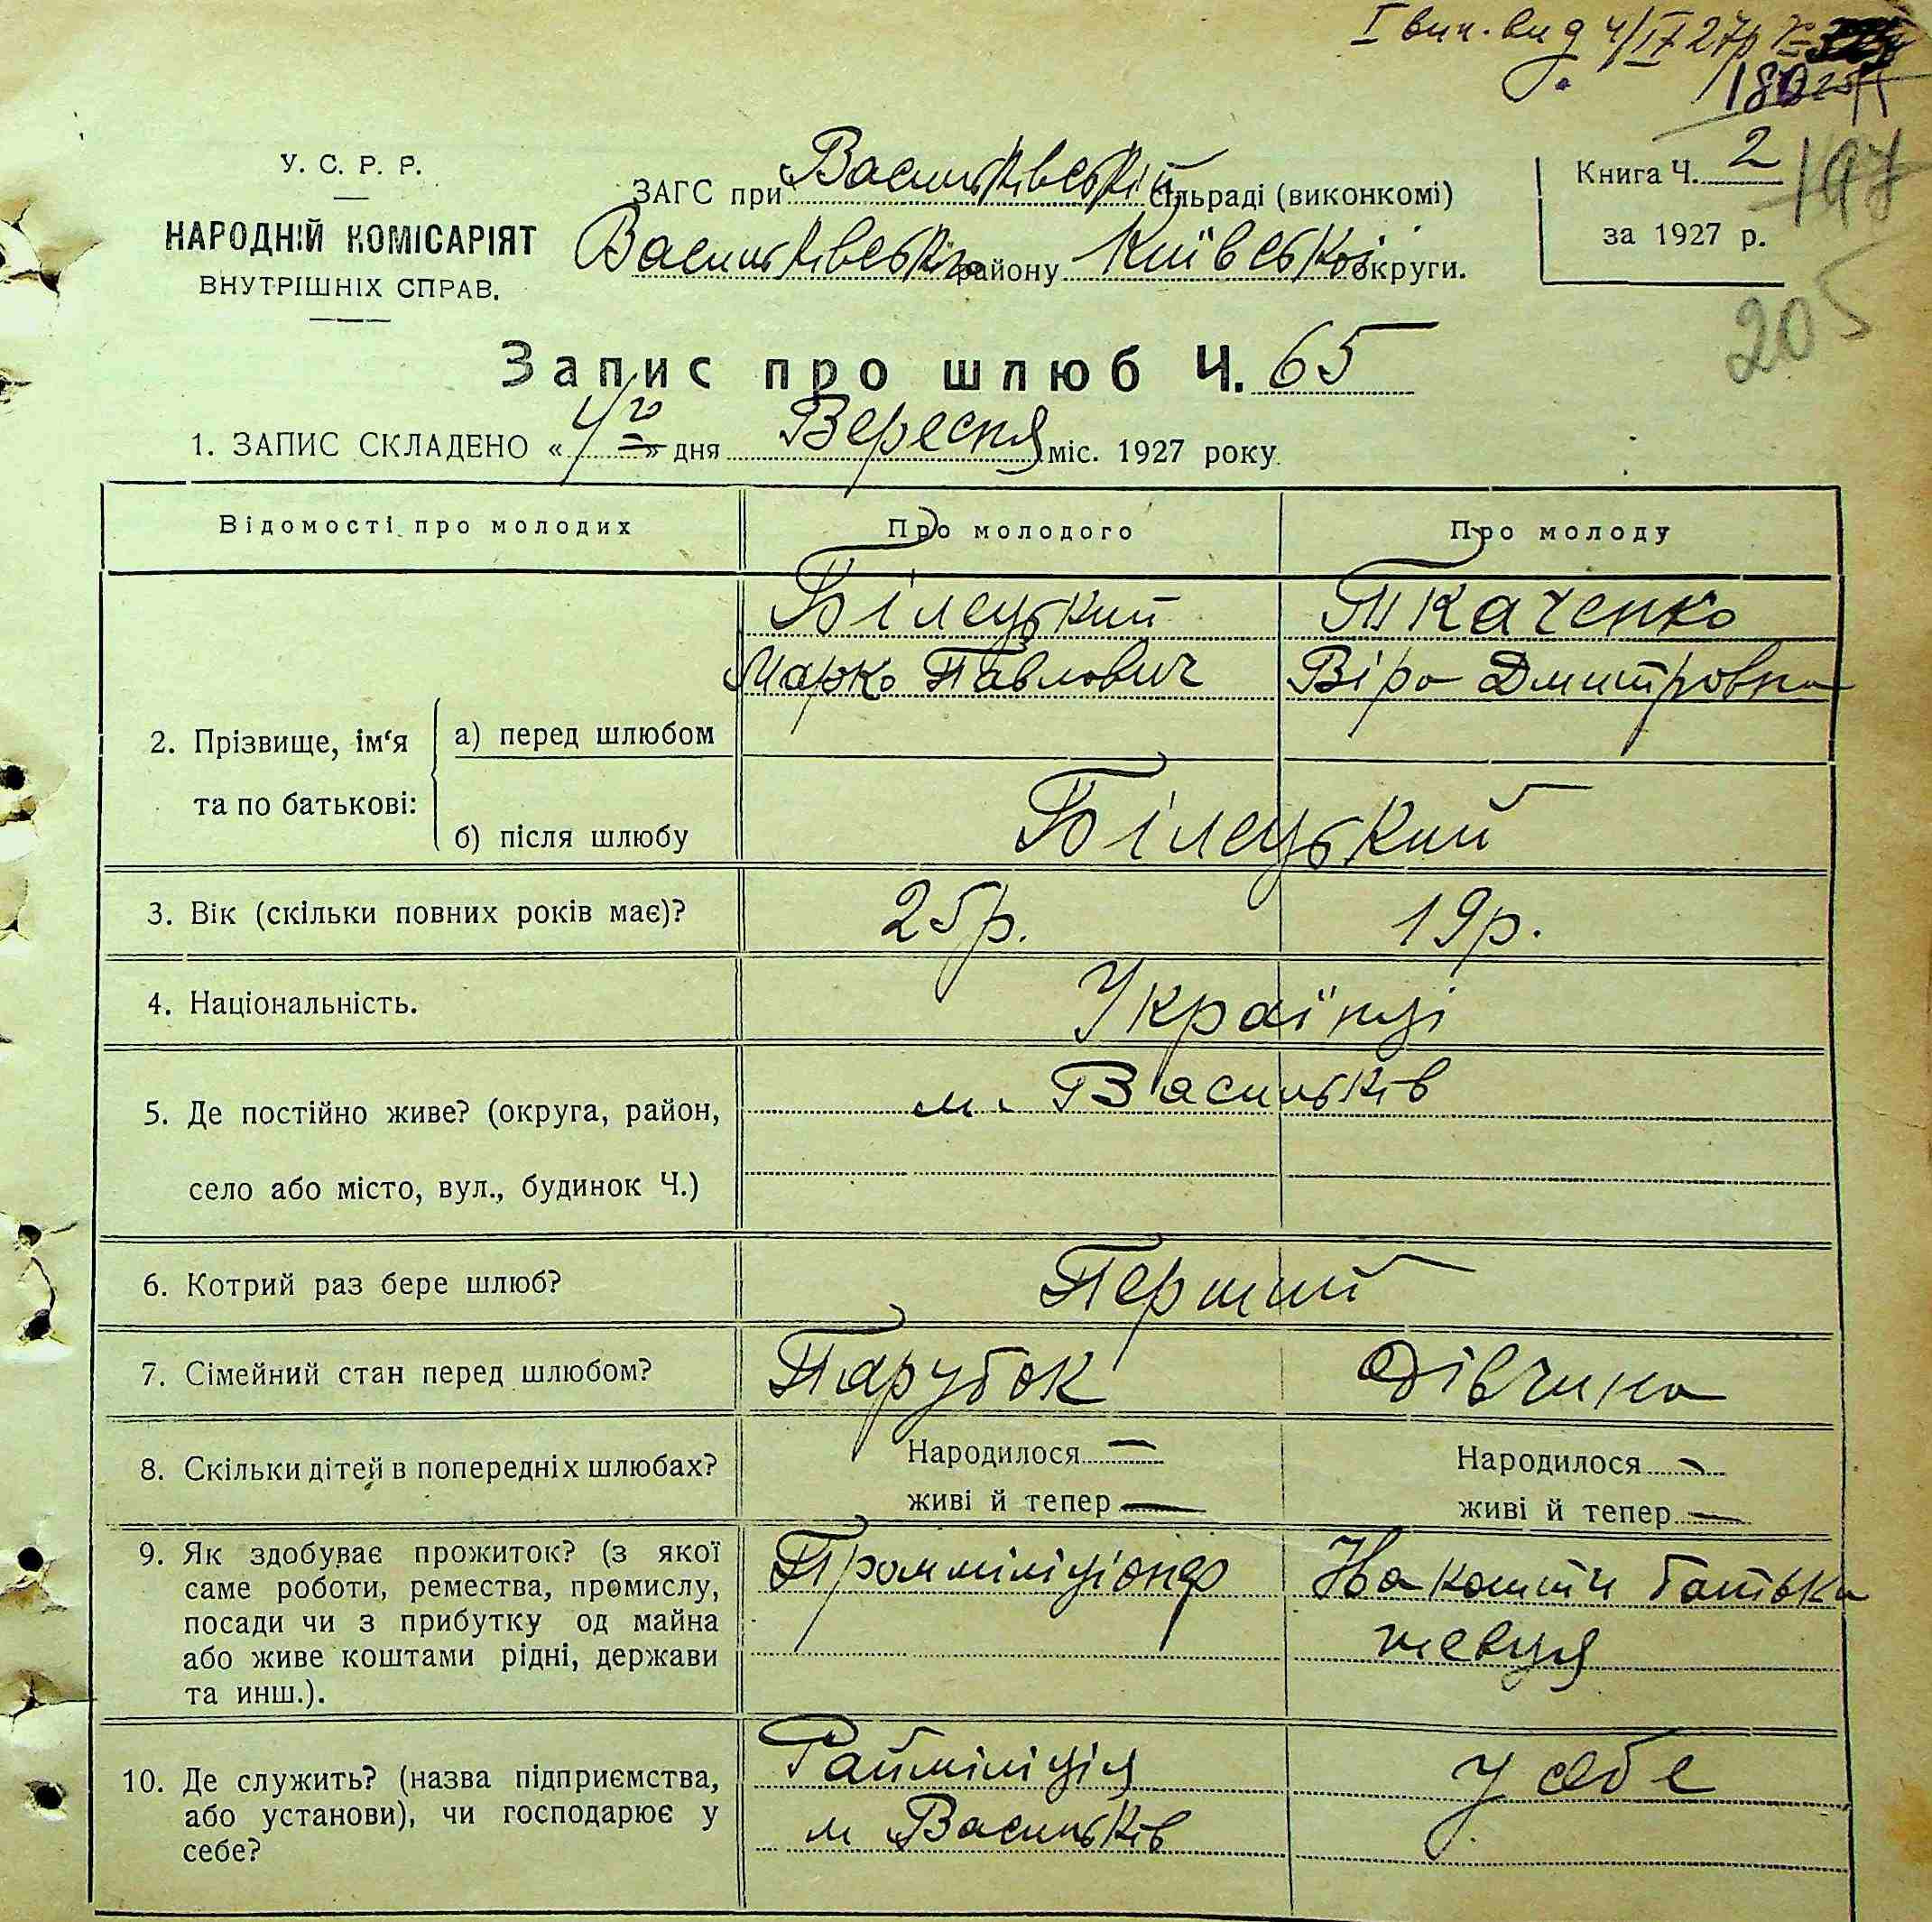 І вип. вид 4/ІХ 27р
180
У. С. Р. Р.
НАРОДНІЙ КОМІСАРІЯТ
ВНУТРІШНІХ СПРАВ.
ЗАГС при Васильківській сільраді (виконкомі)
Васильківського району Київської округи.
Книга Ч. 2
за 1927 р.
197
205
Запис про шлюб Ч. 65
1. ЗАПИС СКЛАДЕНО « 4го » дня Вересня міс. 1927 року
Відомості про молодих Про молодого Про молоду
Білецький Ткаченко
Марко Павлович Віра Дмитровна
2. Прізвище, ім‘я а) перед шлюбом
та по батькові:
б) після шлюбу Білецький
3. Вік (скільки повних років має)? 25р. 19р.
4. Національність. Українці
5. Де постійно живе? (округа, район, м. Васильків
село або місто, вул., будинок Ч.)
6. Котрий раз бере шлюб? Перший
7. Сімейний стан перед шлюбом? Парубок Дівчина
8. Скільки дітей в попередніх шлюбах? Народилося — Народилося —
живі й тепер — живі й тепер —
9. Як здобуває прожиток? (з якої Промміліціонер На кошти батька
саме роботи, ремества, промислу,
посади чи з прибутку од майна живуця
або живе коштами рідні, держави
та инш.).
10. Де служить? (назва підприємства, Райміліція У себе
або установи), чи господарює у м Васильків
себе?